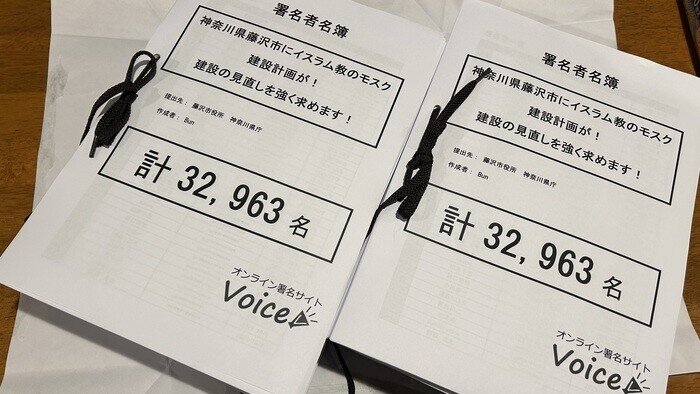 署名者名簿
神奈川県藤沢市にイスラム教のモスク
建設計画が！
建設の見直しを強く求めます！
提出先： 藤沢市役所　神奈川県庁
作成者： Bun
計 32,963 名
オンライン署名サイト
Voice
署名者名簿
神奈川県藤沢市にイスラム教のモスク
建設計画が！
建設の見直しを強く求めます！
提出先： 藤沢市役所　神奈川県庁
作成者： Bun
計 32,963 名
オンライン署名サイト
Voice